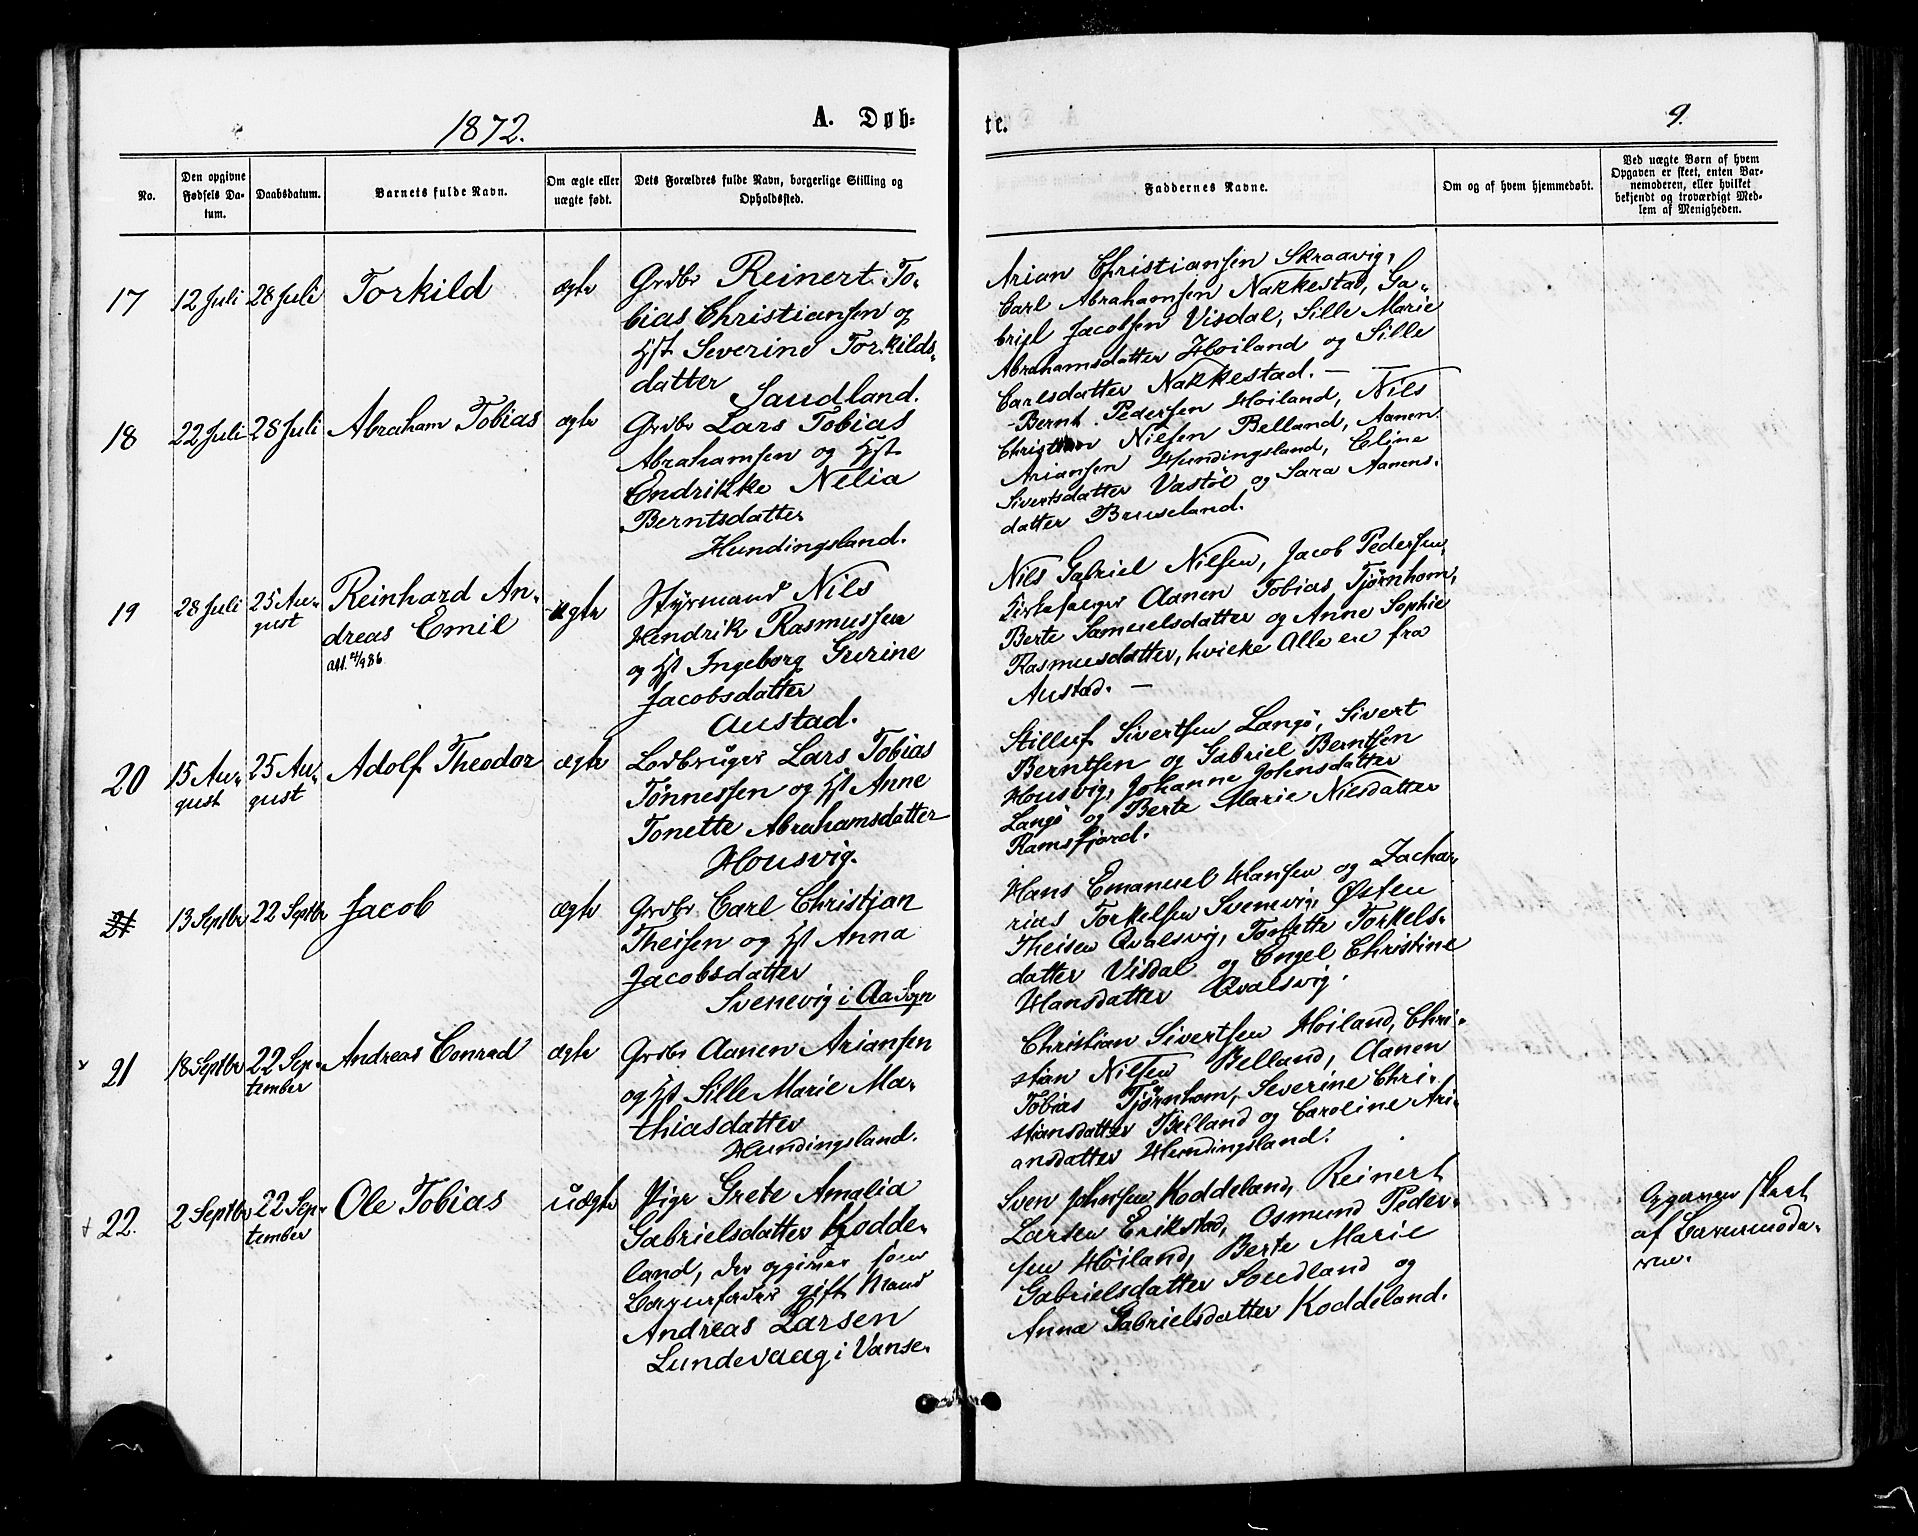 1872.
A. Døb-
te.
9.
No.
Den opgivne
Fødsels Da-
tum.
Daabsdatum.
Barnets fulde Navn.
Om ægte eller
uægte født.
Dets Forældres fulde Navn, borgerlige Stilling og
Opholdssted.
Faddernes Navne.
Om og af hvem hjemmedøbt.
Ved uægte Børn af hvem
Opgaven er skeet, enten Bar-
nemoderen, eller hvilket
bekjendt og troværdigt Med-
lem af Menigheden.
17 12 Juli 28 Juli Torkild ægte
Grdbr Reinert To-
bias Christiansen og
Hst Severine Torkilds-
datter
Saudland.
Arian Christiansen Skraavig,
Carl Abrahamsen Nakkestad, Ga-
briel Jacobsen Visdal, Sille Marie
Abrahamsdatter Høiland og Sille
Carlsdatter Nakkestad. —
18 22 Juli 28 Juli Abraham Tobias ægte
Grdbr Lars Tobias
Abrahamsen og Hst
Endrikke Nelia
Berntsdatter
Hundingsland.
Bernt Pedersen Høiland, Nils
Christian Nielsen Belland, Aanen
Ariansen Hundingsland, Eline
Sivertsdatter Vastøl og Sara Aanens-
datter Bruseland.
19 28 Juli 25 Au-
gust
Reinhard An-
dreas Emil
ægte
Styrmand Nils
Hendrik Rasmussen
og Hst Ingeborg Gurine
Jacobsdatter
Austad.
Nils Gabriel Nilsen, Jacob Pedersen,
Kirkesanger Aanen Tobias Tjørnhom,
Berte Samuelsdatter og Anne Sophie
Rasmusdatter, hvilke Alle ere fra
Austad. —
20 15 Au-
gust
25 Au-
gust
Adolf Theodor ægte
Lodbruger Lars Tobias
Tønnessen og Hst Anne
Tonette Abrahamsdatter
Housvig.
Stilluf Sivertsen Langø, Sivert
Berntsen og Gabriel Berntsen
Housvig, Johanne Johnsdatter
Langø og Berte Marie Nilsdatter
Ramsfjord.
21 13 Septbr 22 Septbr Jacob ægte
Grdbr Carl Christian
Theisen og Hst Anna
Jacobsdatter
Svenevig i Aa Sogn
Hans Emanuel Hansen og Zacha-
rias Torkelsen Svenevig, Østen
Theisen Qvalsvig, Torbette Torkels-
datter Visdal og Engel Christine
Hansdatter Qvalsvig.
21 18 Septbr 22 Sep-
tember
Andreas Conrad ægte
Grdbr Aanen Ariansen
og Hst Sille Marie Ma-
thiasdatter
Hundingsland.
Christian Sivertsen Høiland, Chri-
stian Nilsen Belland, Aanen
Tobias Tjørnhom, Severine Chri-
stiansdatter Belland og Caroline Ari-
ansdatter Hundingsland.
22. 2 Septbr 22 Sep-
tember
Ole Tobias uægte
Pige Grete Amalia
Gabrielsdatter Kodde-
land, der opgiver som
Barnefader gift Mand
Andreas Larsen
Lundevaag i Vanse.
Sven Johnsen Koddeland, Reinert
Larsen Erikstad, Osmund Peder-
sen Høiland, Berte Marie
Gabrielsdatter Soudland og
Anna Gabrielsdatter Koddeland.
Opgaven skeet
af Barnemode-
ren.